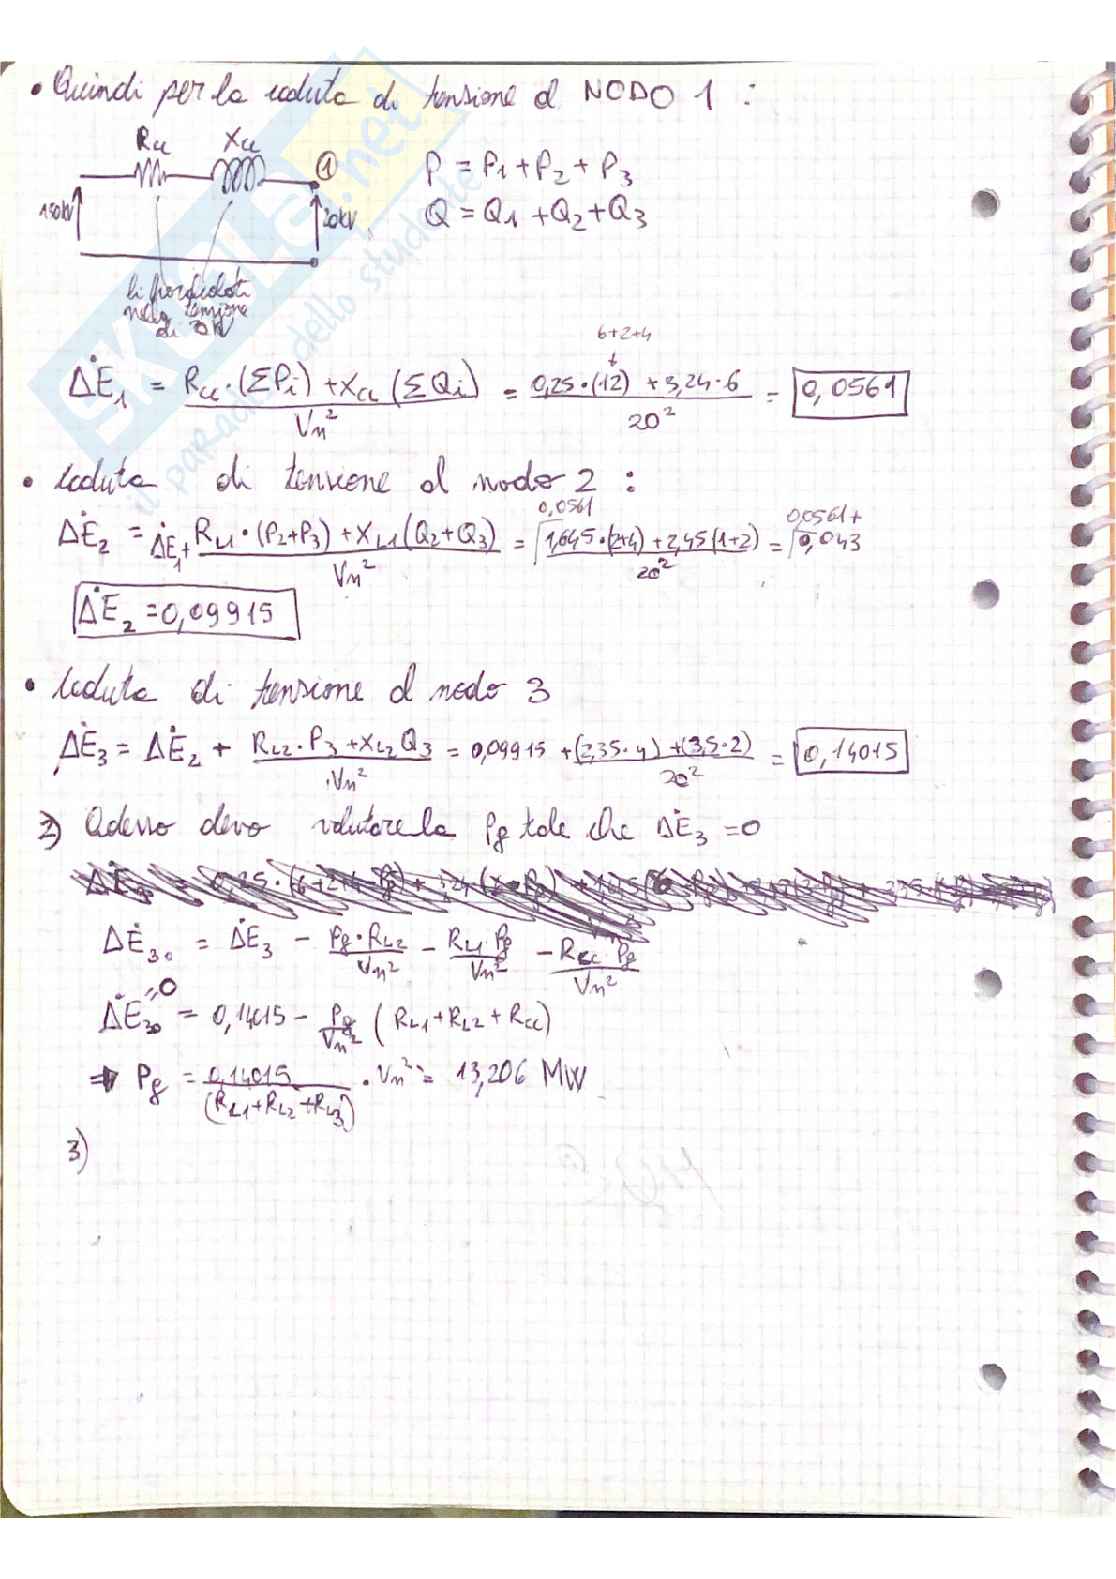 • Quindi per la caduta di tensione al NODO 1 :
Rcc Xcc
①
150kV 20kV
P = P1 + P2 + P3
Q = Q1 + Q2 + Q3
nella tensione
di
6+2+4
ΔĖ1 = Rcc·(ΣPi) + Xcc (ΣQi) / Vn² = 0,25·(12) + 3,24·6 / 20² = 0,0561
• Caduta di tensione al nodo 2 :
ΔĖ2 = ΔĖ1 + RL1·(P2+P3) + XL1(Q2+Q3) / Vn² = 0,0561 1,645·(2+4) + 2,45(1+2) / 20² = 0,0561 + 0,043
ΔĖ2 = 0,09915
• Caduta di tensione al nodo 3
ΔĖ3 = ΔĖ2 + RL2·P3 + XL2 Q3 / Vn² = 0,09915 + (2,35·4) + (3,5·2) / 20² = 0,14015
2) Adesso devo valutare la Pg tale che ΔĖ3 = 0
ΔĖ30 = ΔĖ3 - Pg·RL2 / Vn² - RL1 Pg / Vn² - Rcc Pg / Vn²
ΔĖ30 = 0 = 0,14015 - Pg / Vn² (RL1 + RL2 + Rcc)
⇒ Pg = 0,14015 / (RL1+RL2+RL3) · Vn² = 13,206 MW
3)
SKUOLA.net
il paradiso dello studente